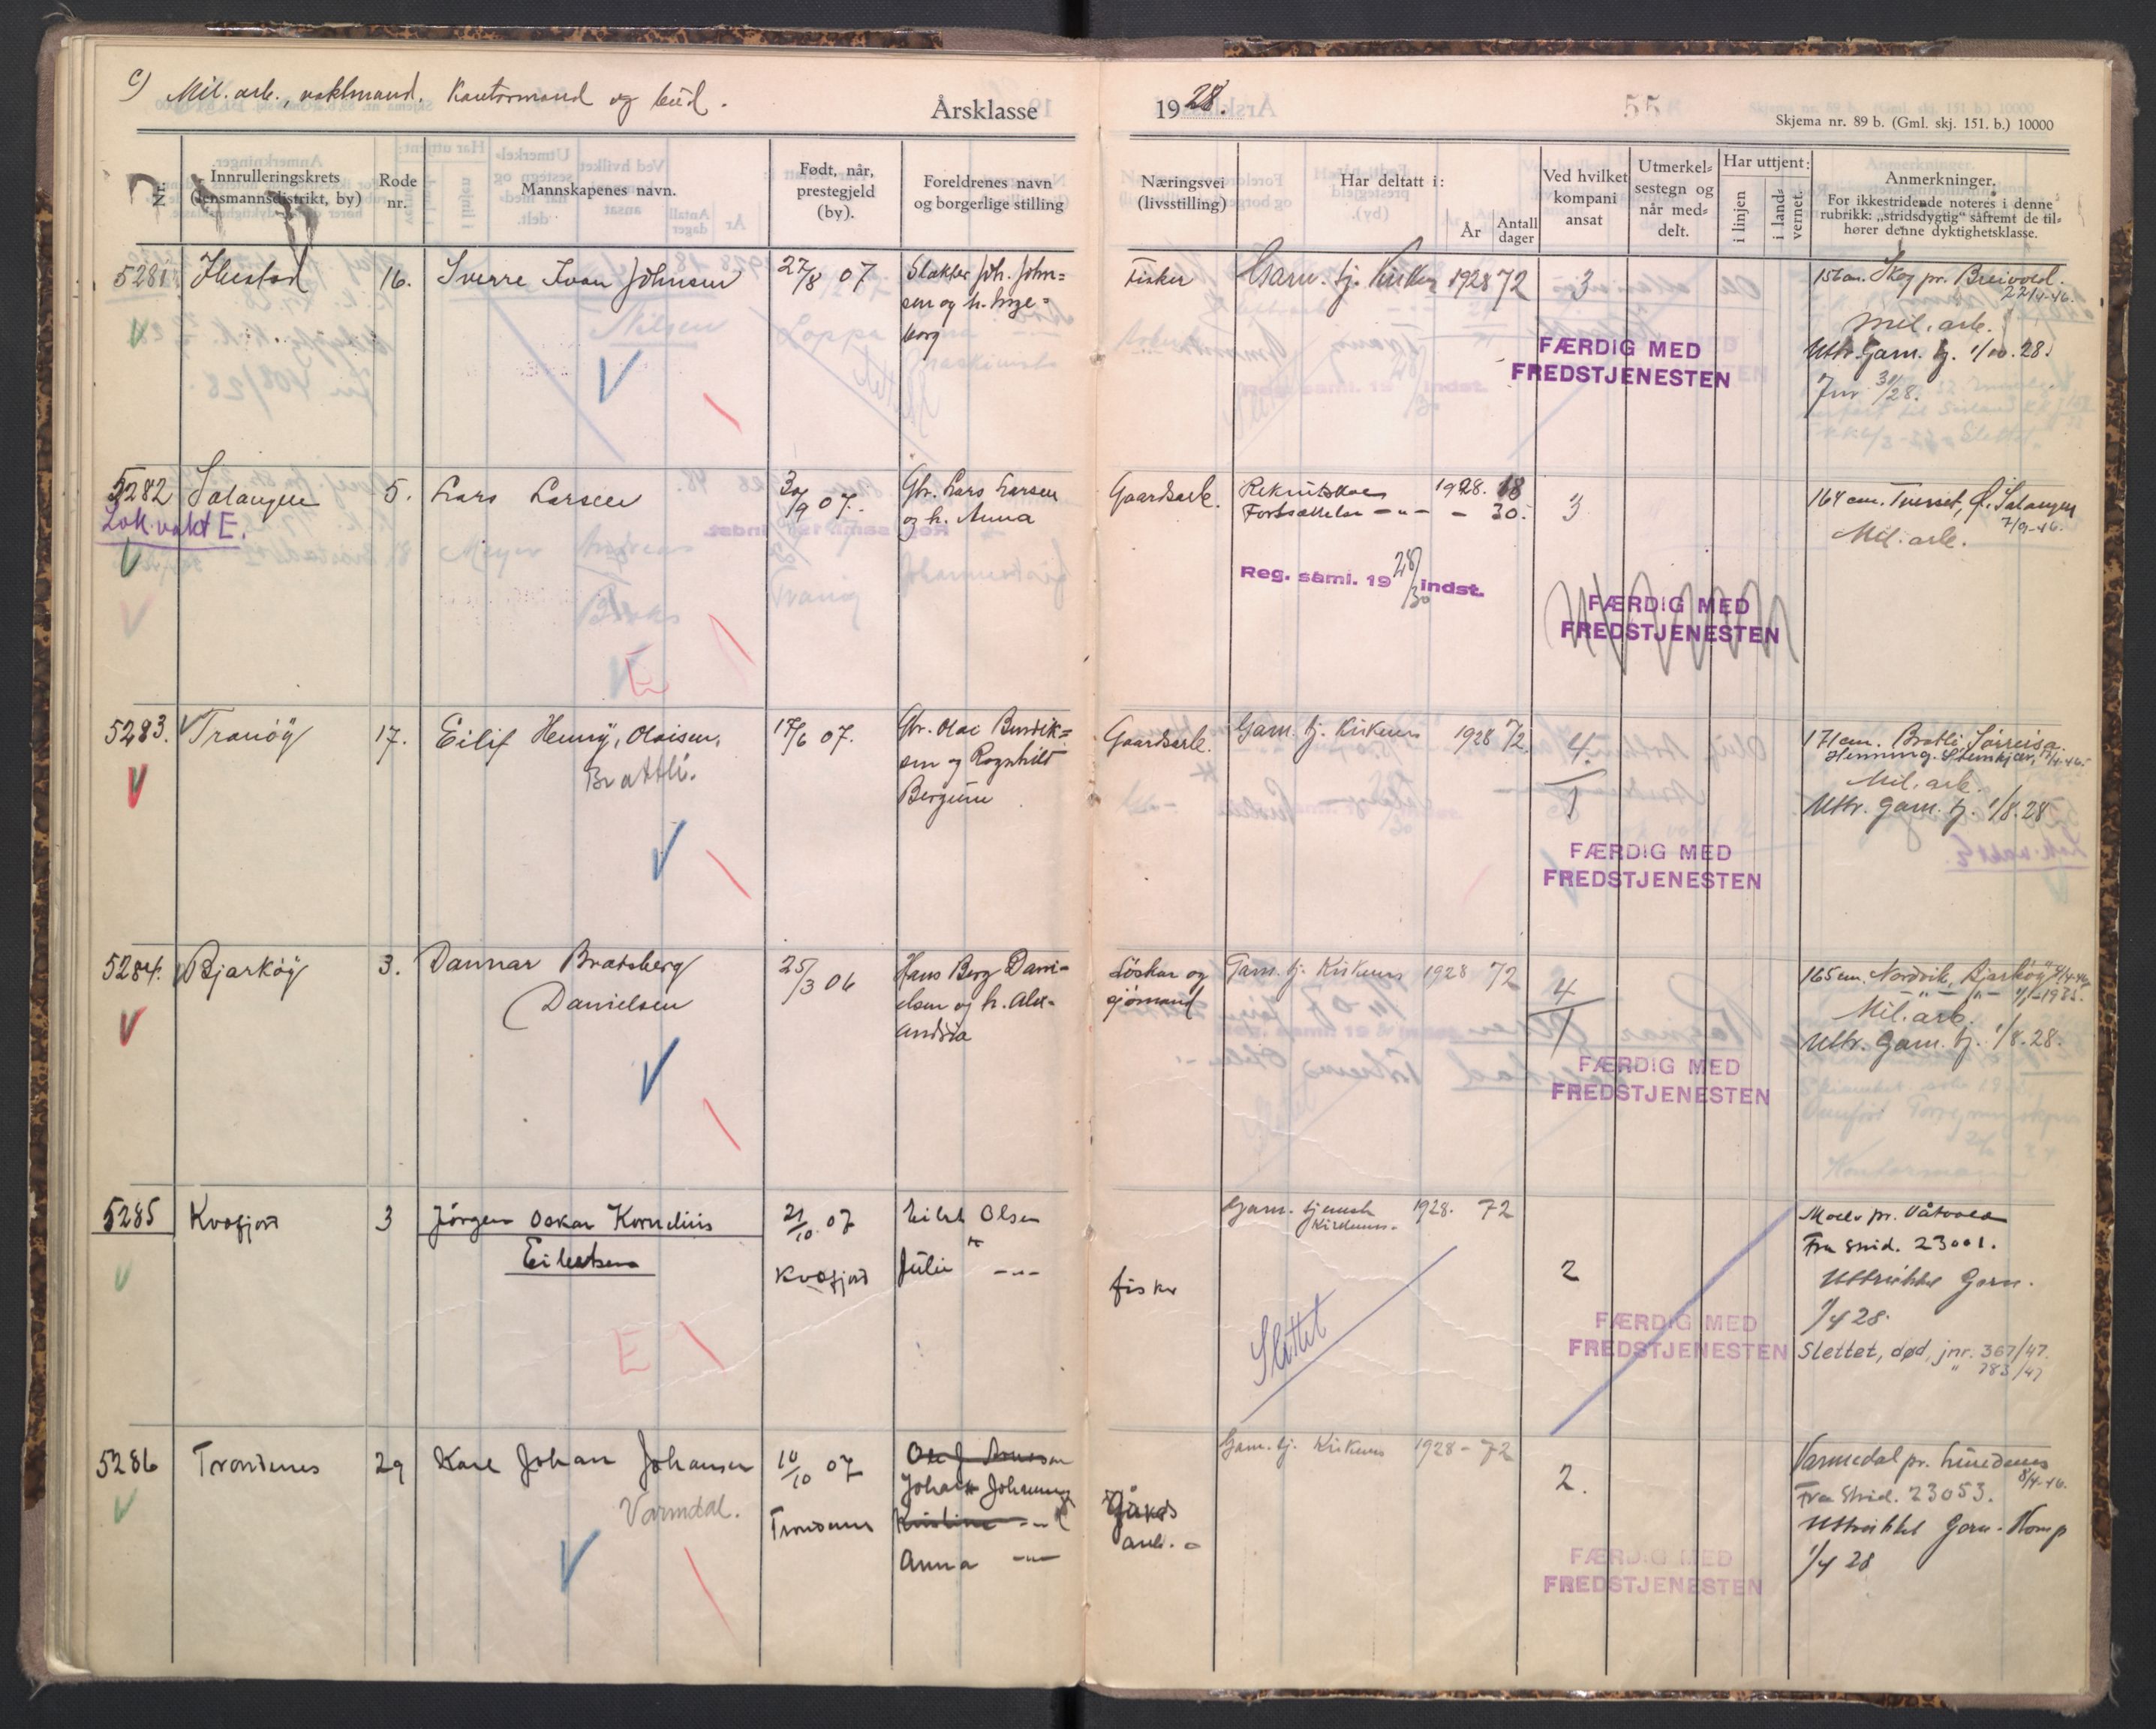 c) Mil. arb., vaktmand, kontormand og bud.
Årsklasse 1928.
Skjema nr. 89 b. (Gml. skj. 151. b.) 10000
Nr.
Innrulleringskrets
(lensmannsdistrikt, by)
Rode
nr.
Mannskapenes navn.
Født, når,
prestegjeld
(by).
Foreldrenes navn
og borgerlige stilling
Næringsvei
(livsstilling)
Har deltatt i:
År
Antall
dager
Ved hvilket
kompani
ansat
Utmerkel-
sestegn og
når med-
delt.
Har uttjent:
i linjen
i land-
vernet.
Anmerkninger.
For ikkestridende noteres i denne
rubrikk: „stridsdygtig" såfremt de til-
hører denne dyktighetsklasse.
5281 Ibestad 16. Sverre Ivan Johnsen 27/8 07
Slakter Joh. John-
sen og h. Inge-
borg
Fisker
Garn. tj. Kirkenes 1928 72
3
FÆRDIG MED
FREDSTJENESTEN
156 cm. Skog pr. Breivold.
22/4-46.
Mil. arb.
Uttr. Garn. tj. 1/10. 28.
5282 Salangen 5. Lars Larsen 30/9 07.
Lok. vakt E.
Gbr. Lars Larsen
og h. Anna
E
Gaardsarb.
Rekrutskole 1928. 18
Fortsættelse -"- - 30.
Reg. saml. 19 28/30 indst.
3
FÆRDIG MED
FREDSTJENESTEN
164 cm. Tverset, Ø. Salangen
7/9-46.
Mil. arb.
5283. Tranöy 17. Eilif Henry, Olaisen, 17/6 07.
Brattli.
Gbr. Olai Bendik-
sen og Ragnhild
Bergum
Gaardsarb.
Garn. tj. Kirkenes 1928 72
4
1
FÆRDIG MED
FREDSTJENESTEN
171 cm. Brattli, Sörreisa.
Henning. Steinkjær,
Mil. arb.
Uttr. garn. tj. 1/8. 28
5284. Bjarköy 3. Dannar Bratsberg 25/3 06
Danielsen
Hans Berg Dani-
elsen og h. Alex-
andria
Löskar og
sjömand
Garn. tj. Kirkenes 1928 72
4
1
FÆRDIG MED
FREDSTJENESTEN
165 cm. Nordvik, Bjarköy
Mil. arb.
Uttr. Garn. tj. 1/8. 28.
5285 Kvæfjord 3 Jörgen Oskar Kornelius 21/10 07
Eilertsen
Kvæfjord
Eilert Olsen
Julie -"-
E
fisker
Garn. tjeneste 1928. 72
Kirkenes.
Slettet
2
FÆRDIG MED
FREDSTJENESTEN
Fra Strid. 23001.
Uttrükket Garn.
1/4 28.
Slettet, død, jnr. 367/47.
" 783/47
5286 Trondenes 29 Karl Johan Johansen 10/10 07
Varmdal.
Trondenes
Johan Johansen
Kristine -"-
Anna -"-
Gårds
arb.
Garn. tj. Kirkenes 1928 - 72
2.
FÆRDIG MED
FREDSTJENESTEN
Varmedal pr. Sandenes
8/4-46.
Fra Strid. 23053.
Uttrükket Garn. Komp
1/4 28